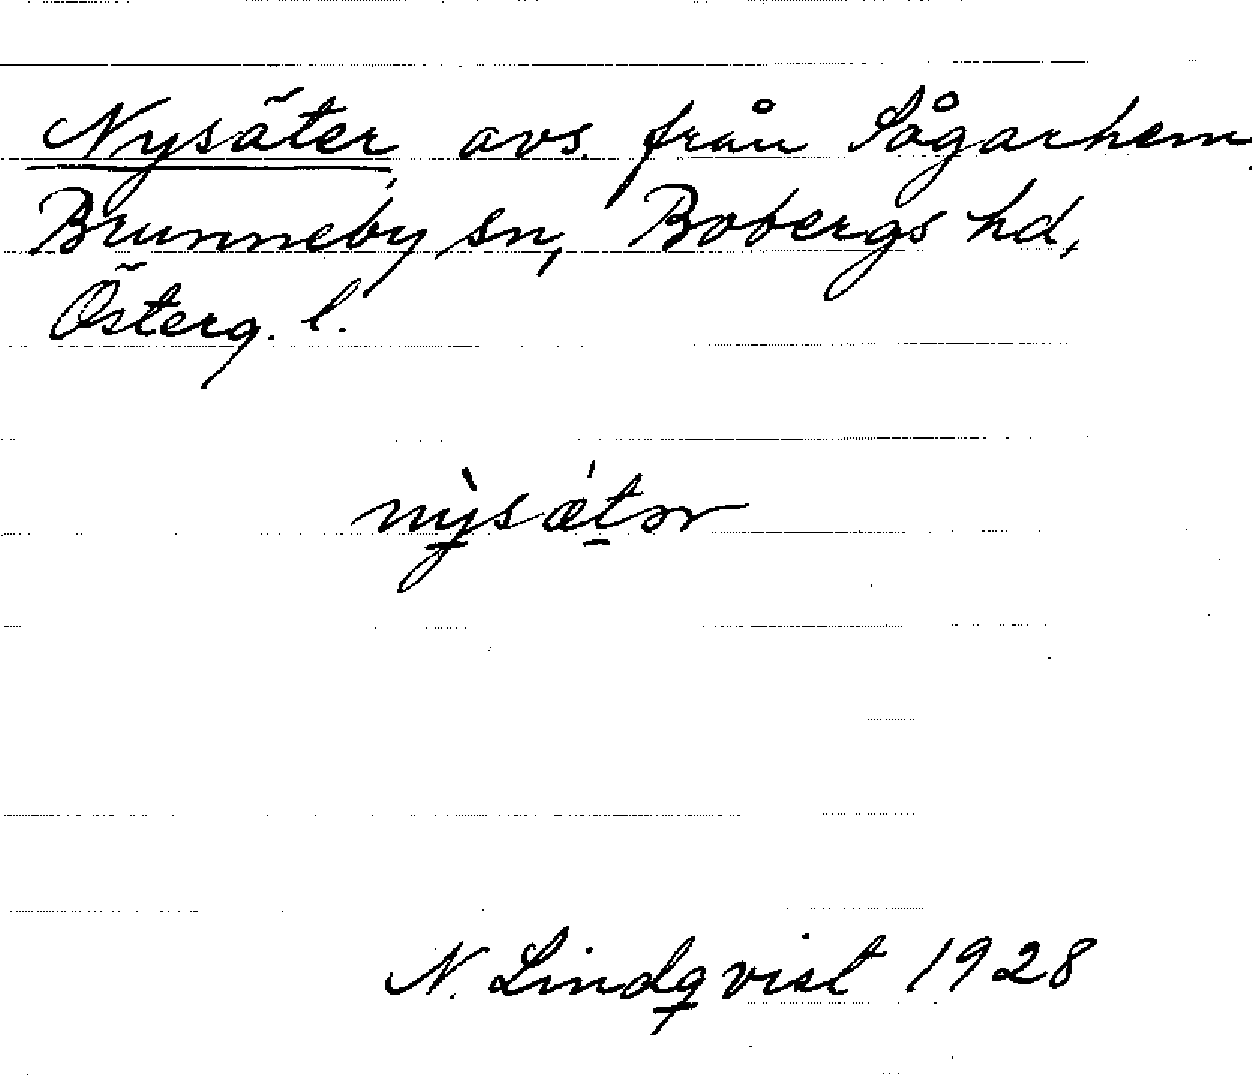 Nysäter, avs. från Sågarhem,
Brunneby sn, Bobergs hd,
Österg. l.
nỳsǽtər
N. Lindqvist 1928